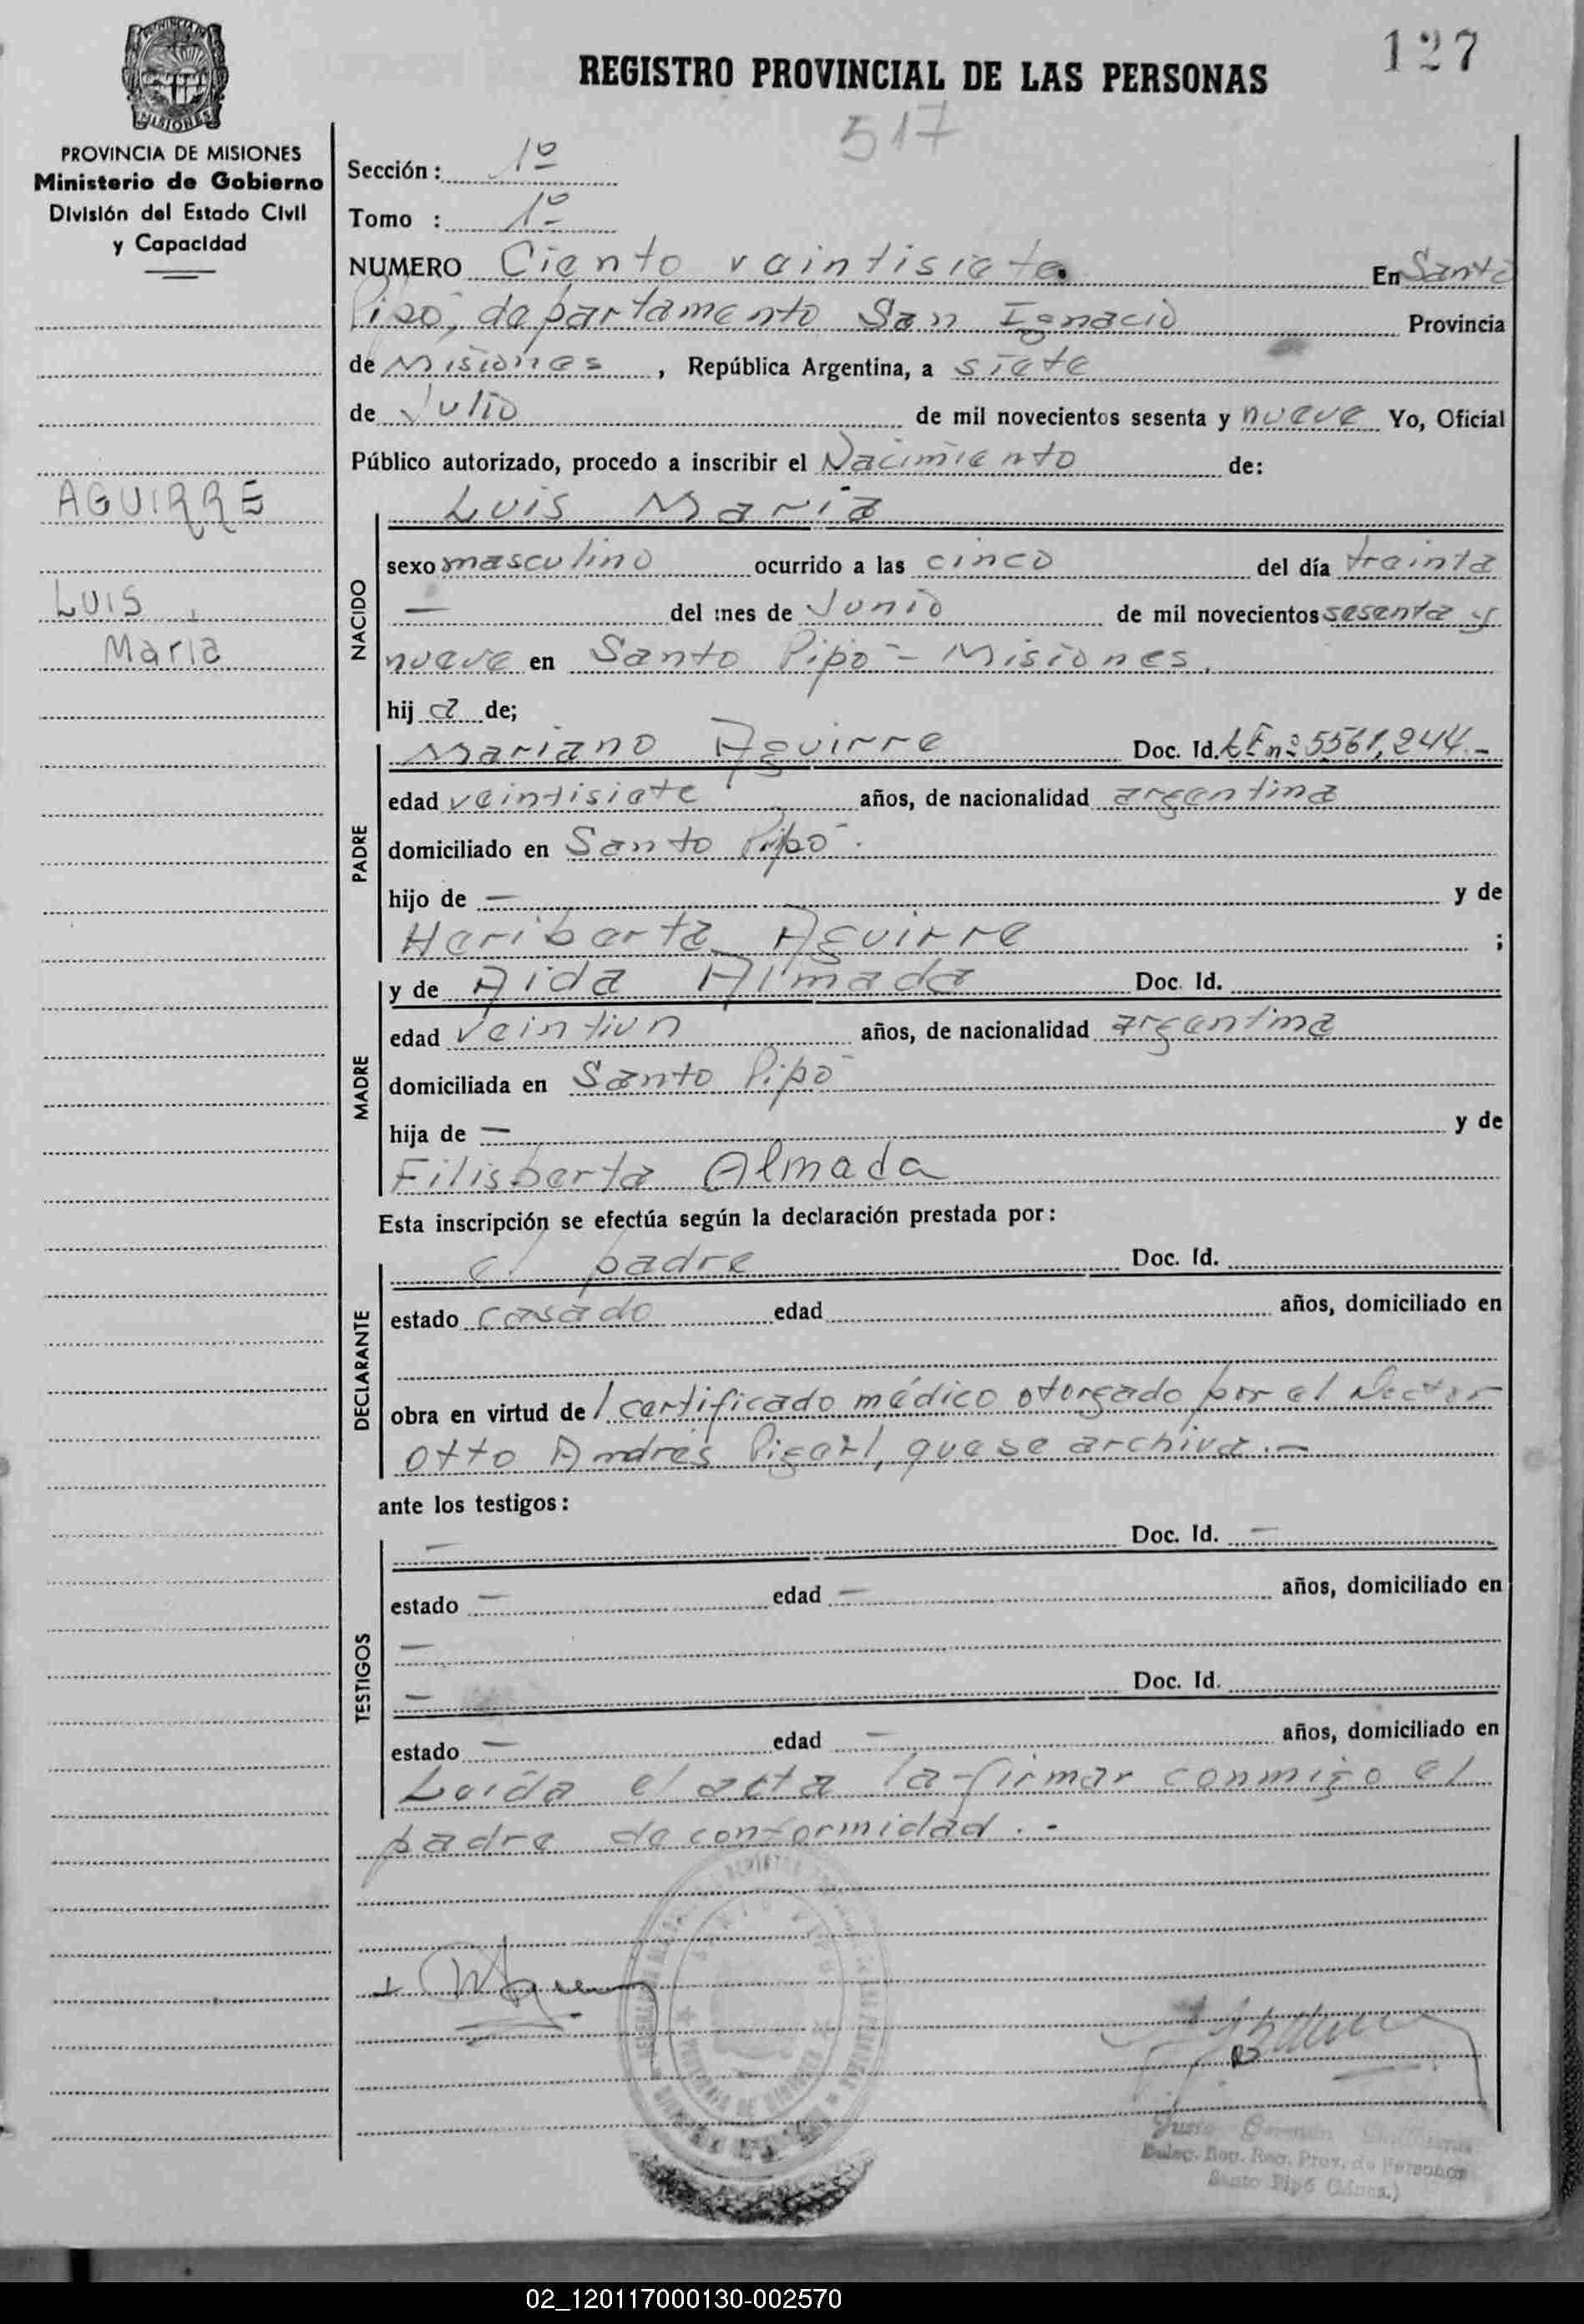 127
REGISTRO PROVINCIAL DE LAS PERSONAS
517
MISIONES
PROVINCIA DE MISIONES
Ministerio de Gobierno
División del Estado Civil
y Capacidad
AGUIRRE
LUIS
Maria
Sección: 1º
Tomo : 1º
NUMERO Ciento veintisiete. En Santo
Pipó, departamento San Ignacio Provincia
de Misiones, República Argentina, a siete
de Julio de mil novecientos sesenta y nueve Yo, Oficial
Público autorizado, procedo a inscribir el Nacimiento de:
Luis Maria
NACIDO
sexo masculino ocurrido a las cinco del día treinta
— del mes de Junio de mil novecientos sesenta y
nueve en Santo Pipó - Misiones.
hij a de;
Mariano Aguirre Doc. Id. LE nº 5561,244.-
PADRE
edad veintisiete años, de nacionalidad argentina
domiciliado en Santo Pipó.
hijo de — y de
Heriberta Aguirre ;
y de Aida Almada Doc. Id.
MADRE
edad veintiun años, de nacionalidad argentina
domiciliada en Santo Pipó
hija de — y de
Filisberta Almada
Esta inscripción se efectúa según la declaración prestada por:
el padre Doc. Id.
DECLARANTE
estado casado edad años, domiciliado en
obra en virtud de l certificado médico otorgado por el Doctor
Otto Andrés, que se archiva.—
ante los testigos:
— Doc. Id. —
TESTIGOS
estado — edad — años, domiciliado en
—
— Doc. Id.
estado — edad — años, domiciliado en
Leída el acta la firmar conmigo el
padre de conformidad.-
Deleg. Reg. Prov. de Personas
Santo Pipó (Mnes.)
02_120117000130-002570